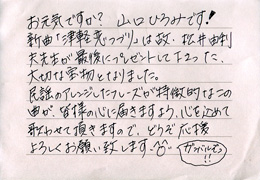 お元気ですか? 山口ひろみです!
新曲「津軽恋つづり」は故・松井由利
夫先生が最後にプレゼントして下さった、
大切な宝物となりました。
民謡のアレンジしたフレーズが特徴的なこの
曲が、皆様の心に届きますよう、心を込めて
歌わせて頂きますので、どうぞ応援
よろしくお願い致します。
ガンバルモン!!